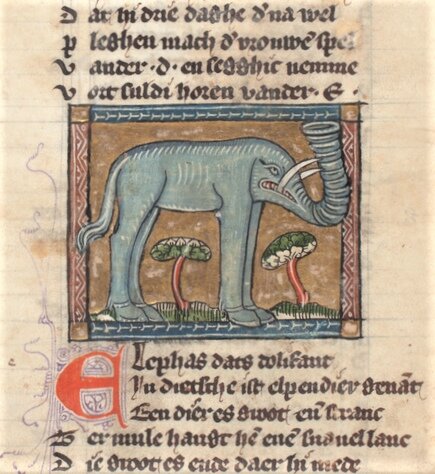 D at hi drie daghe d'na wel
P leghen mach d' vrouwē spel
V ander · d · en segghic nemme
V ort suldi horen vander · E ·
E lephas dats dolifant
In dietsche ist elpendier genāt
Een dier es groot en̄ stranc
T er mule hangt hē ene snauel lanc
D ie groot es ende daer hi mede